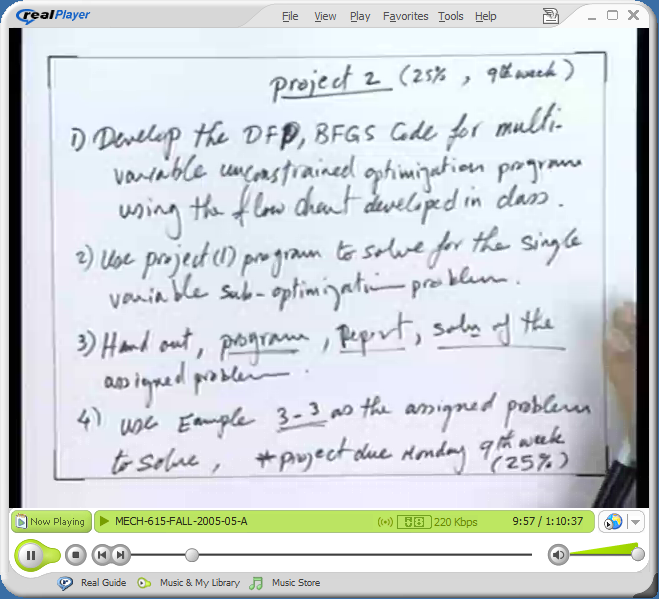 realPlayer
File View Play Favorites Tools Help
Project 2 (25%, 9th week)
1) Develop the DFP, BFGS Code for multi-
variable unconstrained optimization program
using the flow chart developed in class.
2) Use project (1) program to solve for the single
variable sub-optimization problem.
3) Hand out, program, Report, soln of the
assigned problem.
4) Use Example 3-3 as the assigned problem
to solve, * Project due Monday 9th week
(25%)
Now Playing MECH-615-FALL-2005-05-A 220 Kbps 9:57 / 1:10:37
Real Guide Music & My Library Music Store